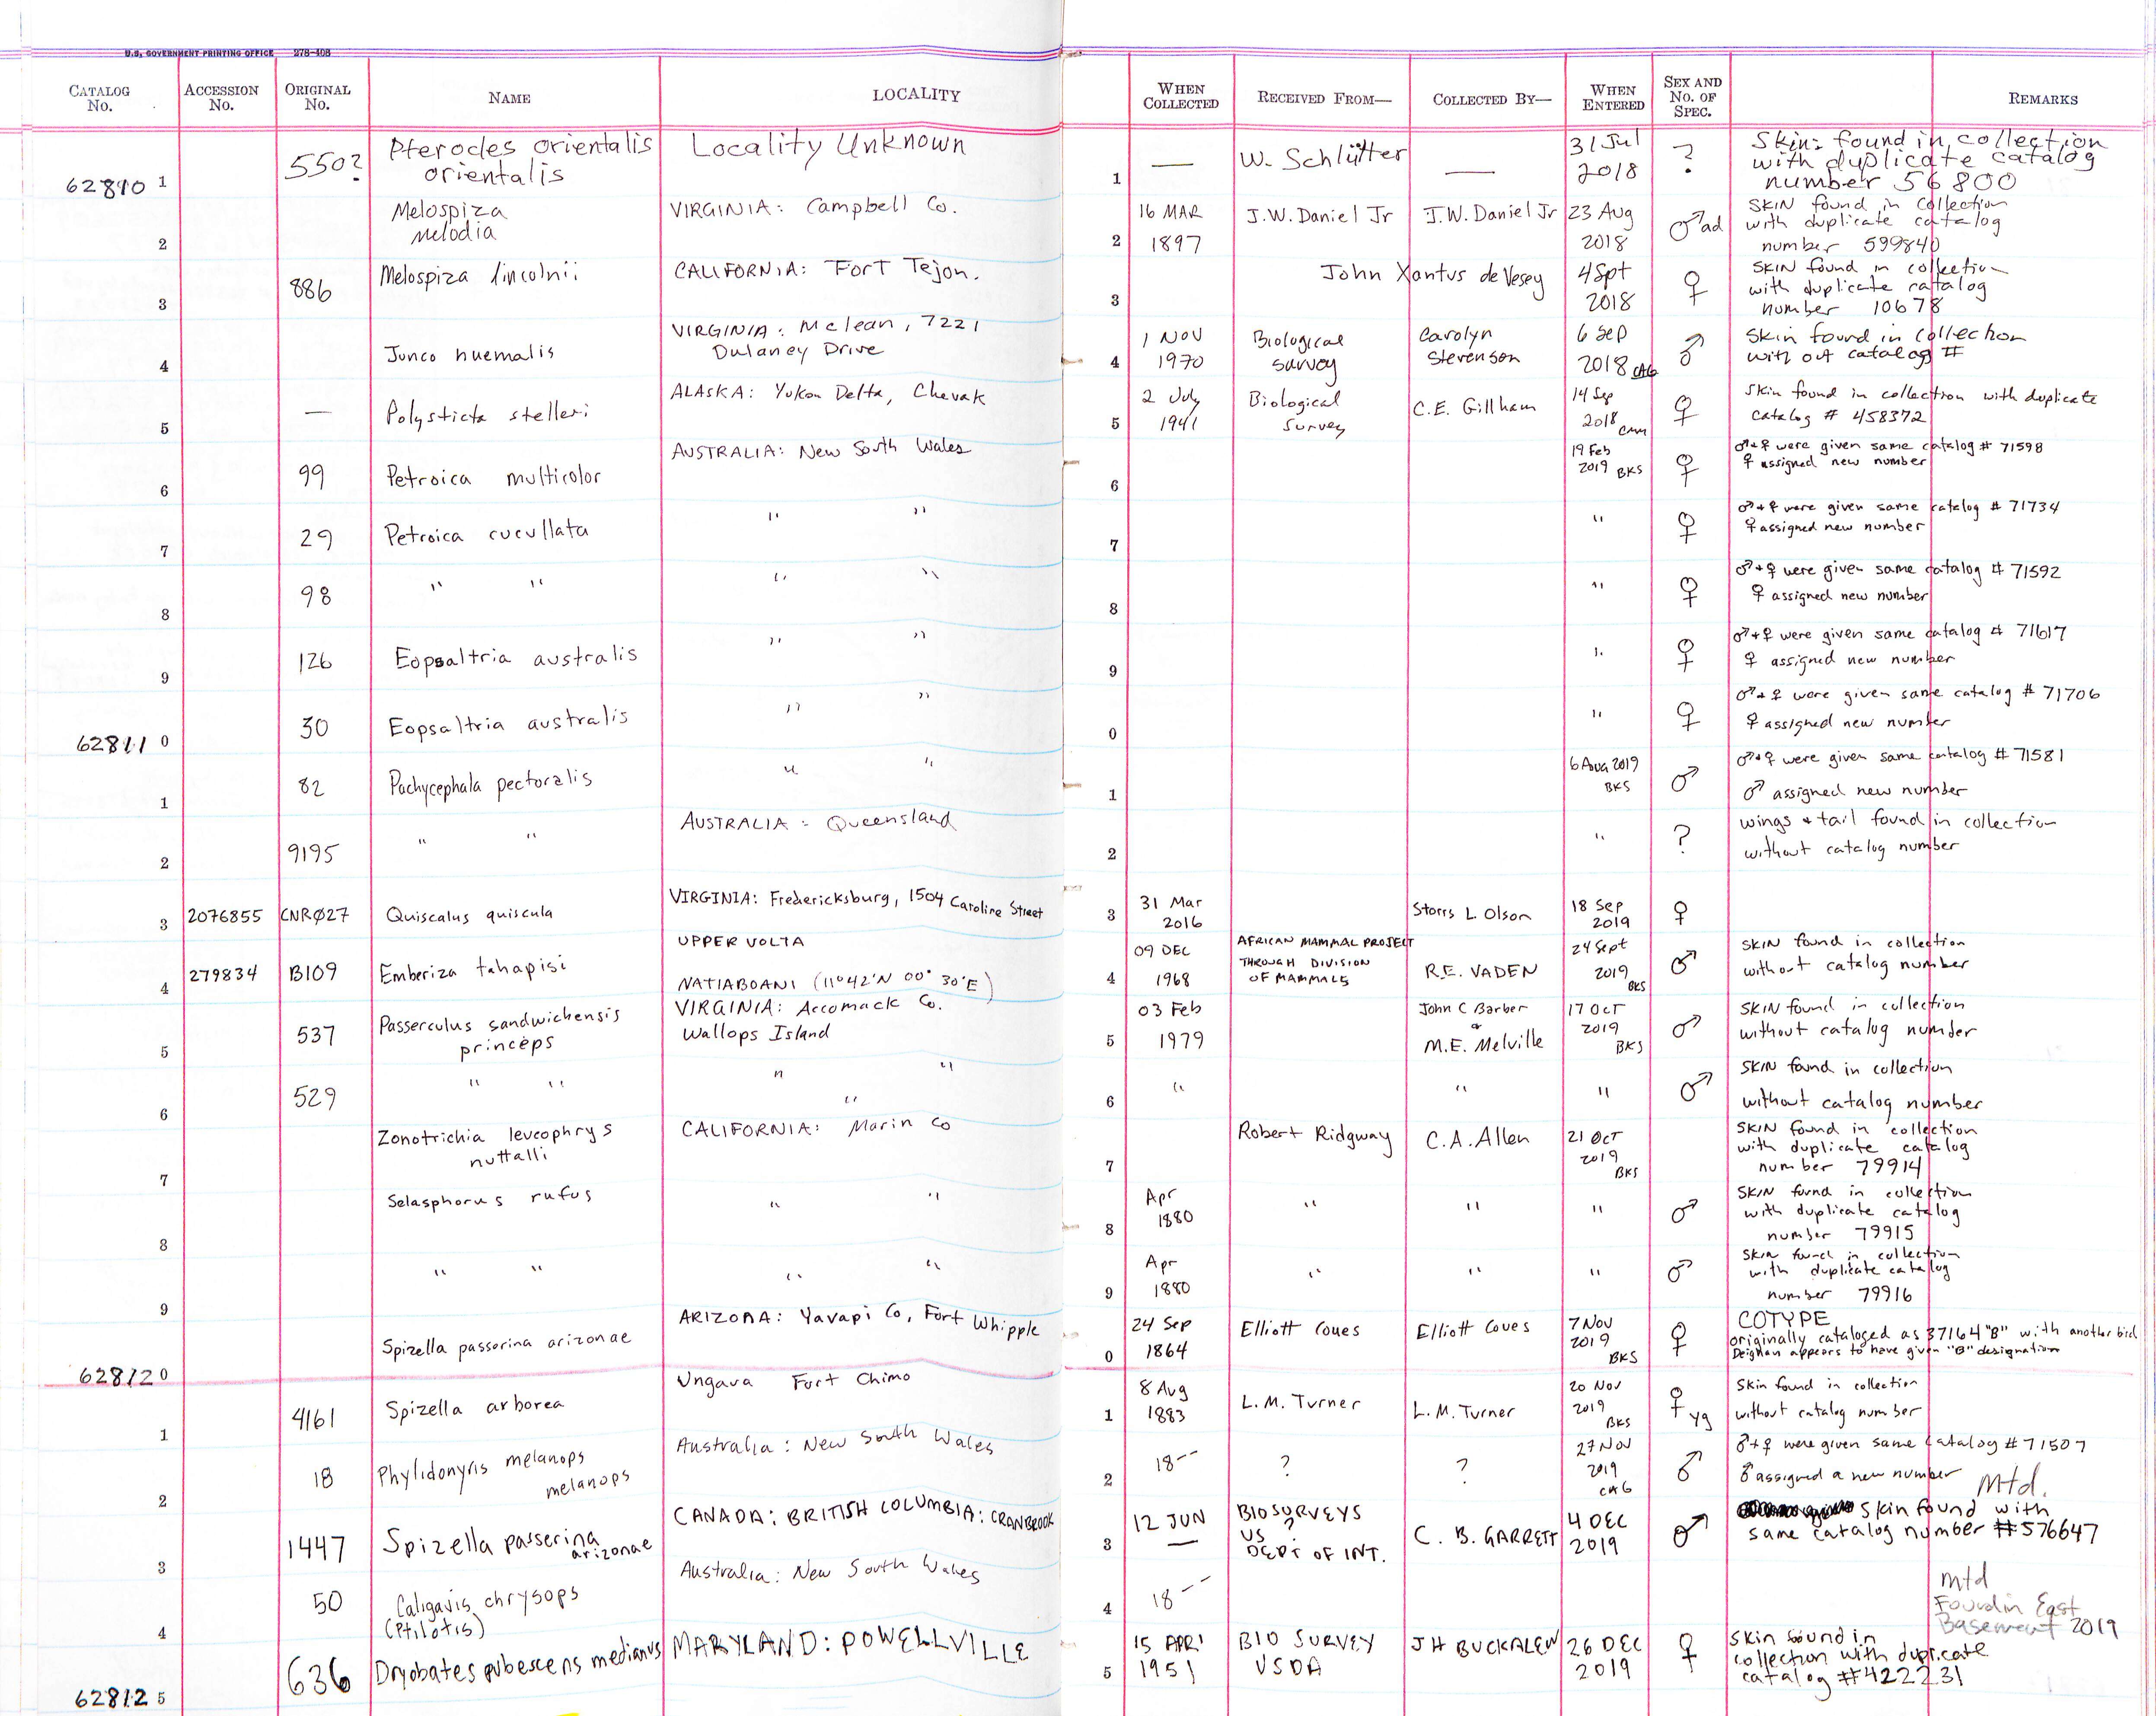 U.S. GOVERNMENT PRINTING OFFICE 278-408
CATALOG No. ACCESSION No. ORIGINAL No. NAME LOCALITY WHEN COLLECTED RECEIVED FROM— COLLECTED BY— WHEN ENTERED SEX AND No. OF SPEC. REMARKS
62810 1 550? Pterocles orientalis orientalis Locality Unknown 1 — W. Schlütter — 31 Jul 2018 ? Skin: found in collection
with duplicate catalog
number 56800
2 Melospiza melodia VIRGINIA: Campbell Co. 2 16 MAR 1897 J.W. Daniel Jr J.W. Daniel Jr 23 Aug 2018 ♂ad SKIN found in collection
with duplicate catalog
number 599840
3 886 Melospiza lincolnii CALIFORNIA: Fort Tejon. 3 John Xantus de Vesey 4 Spt 2018 ♀ SKIN found in collection
with duplicate catalog
number 10678
4 Junco huemalis VIRGINIA: Mclean, 7221 Dulaney Drive 4 1 NOV 1970 Biological survey Carolyn Stevenson 6 SEP 2018 CAG ♂ Skin found in collection
with out catalog #
5 — Polysticta stelleri ALASKA: Yukon Delta, Chevak 5 2 July 1941 Biological Survey C.E. Gillham 14 Sep 2018 CMM ♀ Skin found in collection with duplicate
catalog # 458372
6 99 Petroica multicolor AUSTRALIA: New South Wales 6 19 Feb 2019 BKS ♀ ♂+♀ were given same catalog # 71598
♀ assigned new number
7 29 Petroica cucullata " " 7 " ♀ ♂+♀ were given same catalog # 71734
♀ assigned new number
8 98 " " " " 8 " ♀ ♂+♀ were given same catalog # 71592
♀ assigned new number
9 126 Eopsaltria australis " " 9 " ♀ ♂+♀ were given same catalog # 71617
♀ assigned new number
62811 0 30 Eopsaltria australis " " 0 " ♀ ♂+♀ were given same catalog # 71706
♀ assigned new number
1 82 Pachycephala pectoralis " " 1 6 Aug 2019 BKS ♂ ♂+♀ were given same catalog # 71581
♂ assigned new number
2 9195 " " AUSTRALIA: Queensland 2 " ? wings + tail found in collection
without catalog number
3 2076855 CNRØ27 Quiscalus quiscula VIRGINIA: Fredericksburg, 1504 Caroline Street 3 31 Mar 2016 Storrs L. Olson 18 Sep 2019 ♀
4 279834 B109 Emberiza tahapisi UPPER VOLTA NATIABOANI (11°42'N 00° 30'E) 4 09 DEC 1968 AFRICAN MAMMAL PROJECT THROUGH DIVISION OF MAMMALS R.E. VADEN 24 Sept 2019 BKS ♂ SKIN found in collection
without catalog number
5 537 Passerculus sandwichensis princeps VIRGINIA: Accomack Co. Wallops Island 5 03 Feb 1979 John C Barber & M.E. Melville 17 Oct 2019 BKS ♂ SKIN found in collection
without catalog number
6 529 " " " " " 6 " " " ♂ SKIN found in collection
without catalog number
7 Zonotrichia leucophrys nuttalli CALIFORNIA: Marin Co 7 Robert Ridgway C.A. Allen 21 Oct 2019 BKS SKIN found in collection
with duplicate catalog
number 79914
8 Selasphorus rufus " " 8 Apr 1880 " " " ♂ SKIN found in collection
with duplicate catalog
number 79915
9 " " " " 9 Apr 1880 " " " ♂ SKIN found in collection
with duplicate catalog
number 79916
62812 0 Spizella passerina arizonae ARIZONA: Yavapi Co, Fort Whipple 0 24 Sep 1864 Elliott Coues Elliott Coues 7 Nov 2019 BKS ♀ COTYPE
originally cataloged as 37164 "B" with another bird
Deignan appears to have given "B" designation
1 4161 Spizella arborea Ungava Fort Chimo 1 8 Aug 1883 L.M. Turner L.M. Turner 20 Nov 2019 BKS ♀ yg Skin found in collection
without catalog number
2 18 Phylidonyris melanops melanops Australia: New South Wales 2 18-- ? ? 27 Nov 2019 CAG ♂ ♂+♀ were given same catalog # 71507
♂ assigned a new number Mtd.
3 1447 Spizella passerina arizonae CANADA: BRITISH COLUMBIA: CRANBROOK 3 12 JUN — BIOSURVEYS US ? DEPT OF INT. C. B. GARRETT 4 DEC 2019 ♂ Skin found with
same catalog number #576647
4 50 Caligavis chrysops (Ptilotis) Australia: New South Wales 4 18-- mtd
Found in East
Basement 2019
62812 5 636 Dryobates pubescens medianus MARYLAND: POWELLVILLE 5 15 APRI 1951 BIO SURVEY USDA JH BUCKALEW 26 DEC 2019 ♀ Skin found in
collection with duplicate
catalog #422231